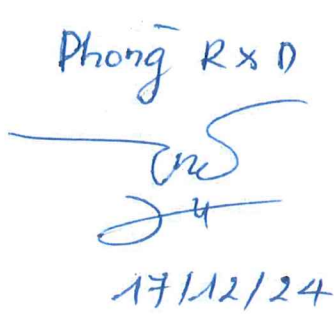 Phòng RxD
17/12/24